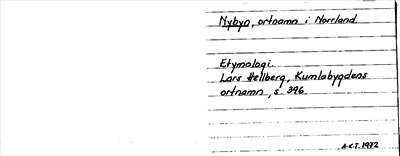 Nybyn, ortnamn i Norrland.
Etymologi.
Lars Hellberg, Kumlabygdens
ortnamn, s. 396.
A.K.T. 1972